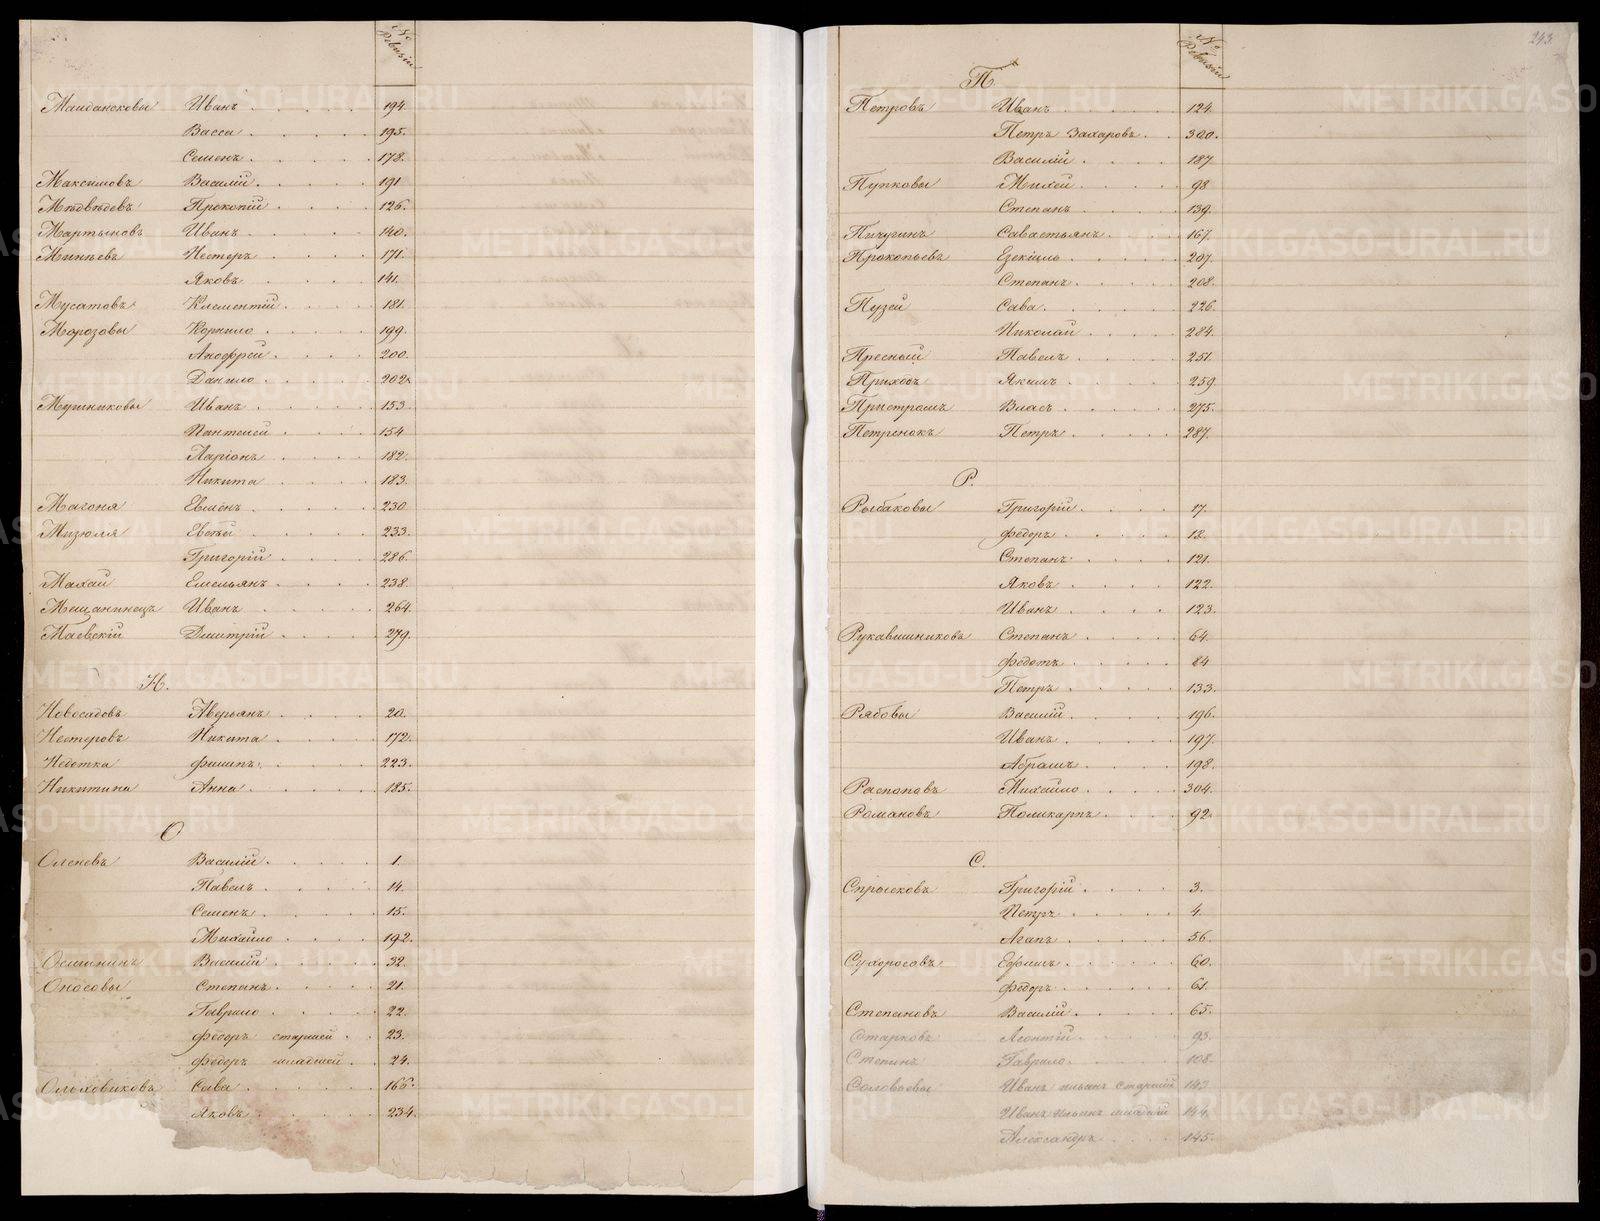 № Ревизiи
Маидансковы Иванъ 194.
Васса 195.
Семенъ 178.
Максимовъ Василiй 191
Мѣдвѣдевъ Прокопiй 126.
Мартыновъ Иванъ 140.
Минѣевъ Нестеръ 171.
Яковъ 141.
Мусатовъ Клементiй 181.
Морозовы Корнило 199.
Андфрей 200.
Данило 202.
Мушниковы Иванъ 153.
Пантелей 154
Ларiонъ 182.
Никита 183.
Магоня Евменъ 230.
Мизюля Евсѣй 233.
Григорiй 286.
Махай Емельянъ 238.
Мещанинецъ Иванъ 264.
Маевскiй Дмитрiй 279.
Н.
Новосадовъ Аверьянъ 20.
Нестеровъ Никита 172.
Недотка Филипъ 223.
Никитина Анна 185.
О
Оленевъ Василiй 1.
Павелъ 14.
Семенъ 15.
Михайло 192.
Осминнинъ Василiй 32.
Оносовы Степанъ 21.
Гаврило 22.
Федоръ старшей 23.
Федоръ младшей 24.
Ольховиковъ Сава 165.
Яковъ 234.
243.
№ Ревизiи
П.
Петровъ Иванъ 124.
Петръ Захаровъ 300.
Василiй 187
Пупковы Михей 98
Степанъ 139.
Пичугинъ Савастьянъ 167.
Прокопьевъ Езекiиль 207.
Степанъ 208.
Пузей Сава 226.
Николай 284.
Пресный Павелъ 251.
Приходъ Якимъ 259
Пристромъ Власъ 275.
Петренокъ Петръ 287.
Р.
Рыбаковы Григорiй 17.
Федоръ 12.
Степанъ 121.
Яковъ 122.
Иванъ 123.
Рукавишниковъ Степанъ 64.
Федотъ 84
Петръ 133.
Рябовы Василiй 196.
Иванъ 197.
Абрамъ 198.
Распоповъ Михайло 304.
Романовъ Поликарпъ 92.
С.
Спрысковъ Григорiй 3.
Петръ 4.
Агапъ 56.
Сухоросовъ Ефимъ 60.
Федоръ 61.
Степановъ Василiй 65.
Старковъ Леонтiй 93.
Степинъ Гаврило 108.
Соловьевы Иванъ Ильинъ старшiй 143
Иванъ Ильинъ младшiй 144.
Александръ 145.